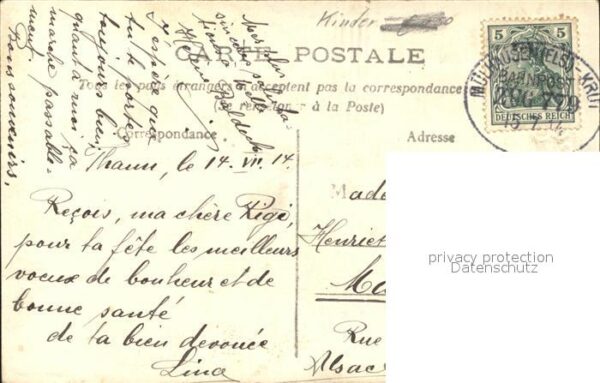 Kinder
CARTE POSTALE
Tous les pays étrangers n'acceptent pas la correspondance
(Se renseigner à la Poste)
Correspondance
Adresse
5 5
DEUTSCHES REICH
MÜLHAUSEN (ELS)
KRÜT
BAHNPOST
ZUG 779
15.7.14
Thann, le 14. VII. 14
Reçois, ma chère Rigi,
pour ta fête les meilleurs
voeux de bonheur et de
bonne santé
de ta bien devouée
Lina
Made
Henriet
Rue
Alsac
j'espère que
tu te portes
toujours bien
quant à moi ça
marche passable-
ment.
Bons souvenirs,
privacy protection
Datenschutz